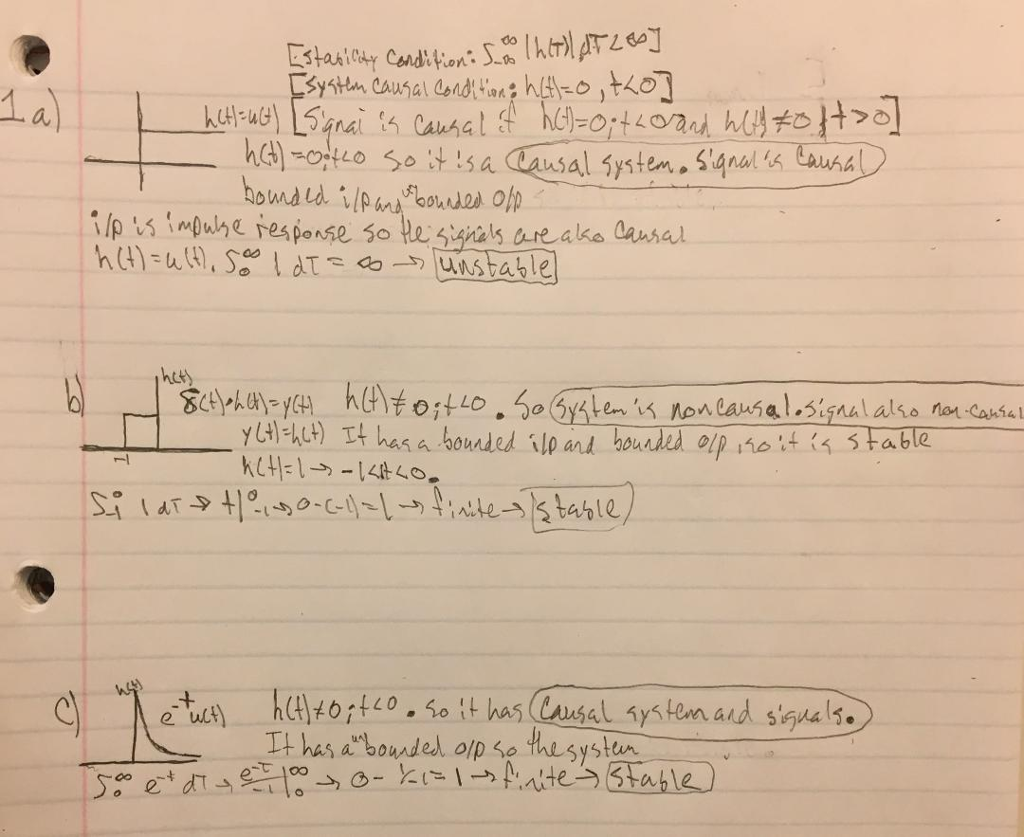 [Stability Condition: ∫_-∞^∞ |h(τ)| dτ < ∞]
[System Causal Condition: h(t)=0, t<0]
1a) h(t)=u(t) [Signal is Causal if h(t)=0; t<0 and h(t)≠0; t>0]
h(t)=0; t<0 so it is a Causal system. Signal is Causal
bounded i/p and "un" bounded o/p
i/p is impulse response so the signals are also Causal
h(t)=u(t). ∫_0^∞ 1 dτ = ∞ → unstable
b) h(t)
δ(t)*h(t)=y(t) h(t)≠0; t<0. So system is noncausal. Signal also non-causal
y(t)=h(t) It has a bounded i/p and bounded o/p, so it is stable
-1
h(t)=1 → -1<t<0.
∫_-1^0 1 dτ → t|_-1^0 → 0-(-1)=1 → finite → stable
c) h(t)
e^-t u(t) h(t)≠0; t<0. so it has Causal system and signals.
It has a "un" bounded o/p so the system
∫_0^∞ e^-t dτ → e^-τ/-1 |_0^∞ → 0 - 1/-1 = 1 → finite → stable